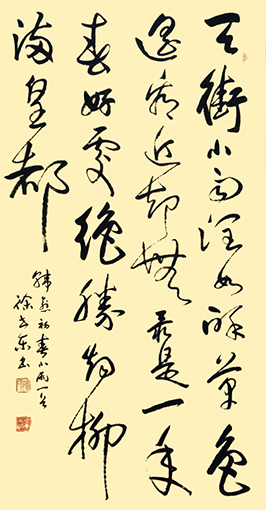 天街小雨潤如酥草色
遥看近却無最是一年
春好處絕勝烟柳
滿皇都
韓愈初春小雨一首
徐 东书